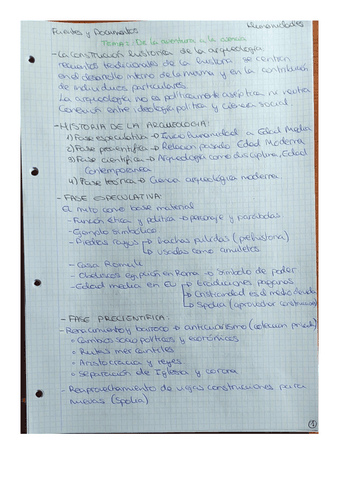 Fuentes y Documentos Humanidades
Tema 1: De la aventura a la ciencia
- La construcción histórica de la arqueología
recuentos tradicionales de la historia se centran
en el desarrollo interno de la misma y en la contribución
de individuos particulares.
La arqueología no es políticamente aséptica ni neutra
Conexión entre ideología política y ciencia social
- HISTORIA DE LA ARQUEOLOGIA:
1) Fase especulativa → Inicio Humanidad a Edad Media
2) Fase precientífica → Relación pasado Edad Moderna
3) Fase científica → Arqueología como disciplina, Edad
Contemporánea
4) Fase teórica → Ciencia arqueológica moderna
- FASE ESPECULATIVA:
El mito como base material
- Función ética y política → personaje y parábolas
- Ejemplo simbólico
- Piedras rayos → hachas pulidas (prehistoria)
→ usadas como amuletos
- Casa Romuli
- Obeliscos egipcios en Roma → símbolo de poder
- Edad media en EU → tradiciones paganas
→ Cristiandad es el medio
→ Spolia
- FASE PRECIENTIFICA:
- Renacimiento y barroco → anticuarismo
- Cambios socio políticos y económicos
- Rutas mercantiles
- Aristocracia y reyes
- Separación de Iglesia y corona
- Reaprovechamiento de viejas construcciones para
nuevas (Spolia)
1